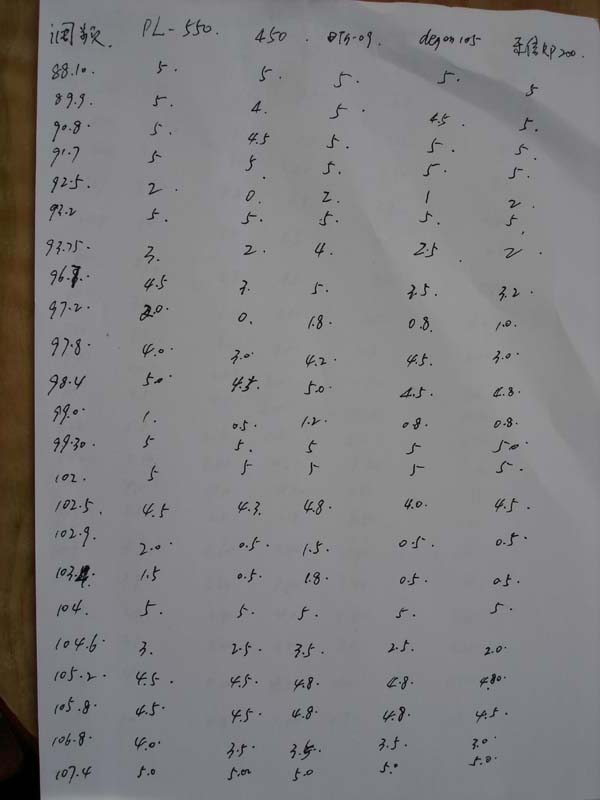 调频. PL-550. 450. DTS-09. degen 105 乐信RP200.
88.10 5. 5. 5. 5. 5
89.9. 5. 4. 5 4.5. 5.
90.8. 5. 4.5 5. 5. 5.
91.7 5 5 5. 5. 5.
92.5. 2. 0. 2. 1 2.
93.2 5. 5. 5. 5. 5.
93.75. 3. 2. 4. 2.5. 2
96. 4.5 3. 5. 3.5. 3.2.
97.2 2.0. 0. 1.8. 0.8. 1.0.
97.8 4.0. 3.0. 4.2. 4.5. 3.0.
98.4 5.0 4.5. 5.0 4.5. 4.8.
99.0. 1. 0.5. 1.2. 0.8. 0.8.
99.30. 5 5. 5 5 5.0.
102. 5 5 5 5. 5.
102.5. 4.5 4.3. 4.8. 4.0. 4.5.
102.9. 2.0. 0.5. 1.5. 0.5. 0.5.
103. 1.5 0.5. 1.8. 0.5. 0.5.
104. 5. 5. 5. 5. 5.
104.6. 3. 2.5. 3.5. 2.5. 2.0.
105.2. 4.5. 4.5. 4.8. 4.8. 4.80.
105.8. 4.5. 4.5. 4.8. 4.8. 4.5.
106.8 4.0. 3.5. 3.5. 3.5. 3.0.
107.4 5.0 5.00 5.0 5.0 5.0.